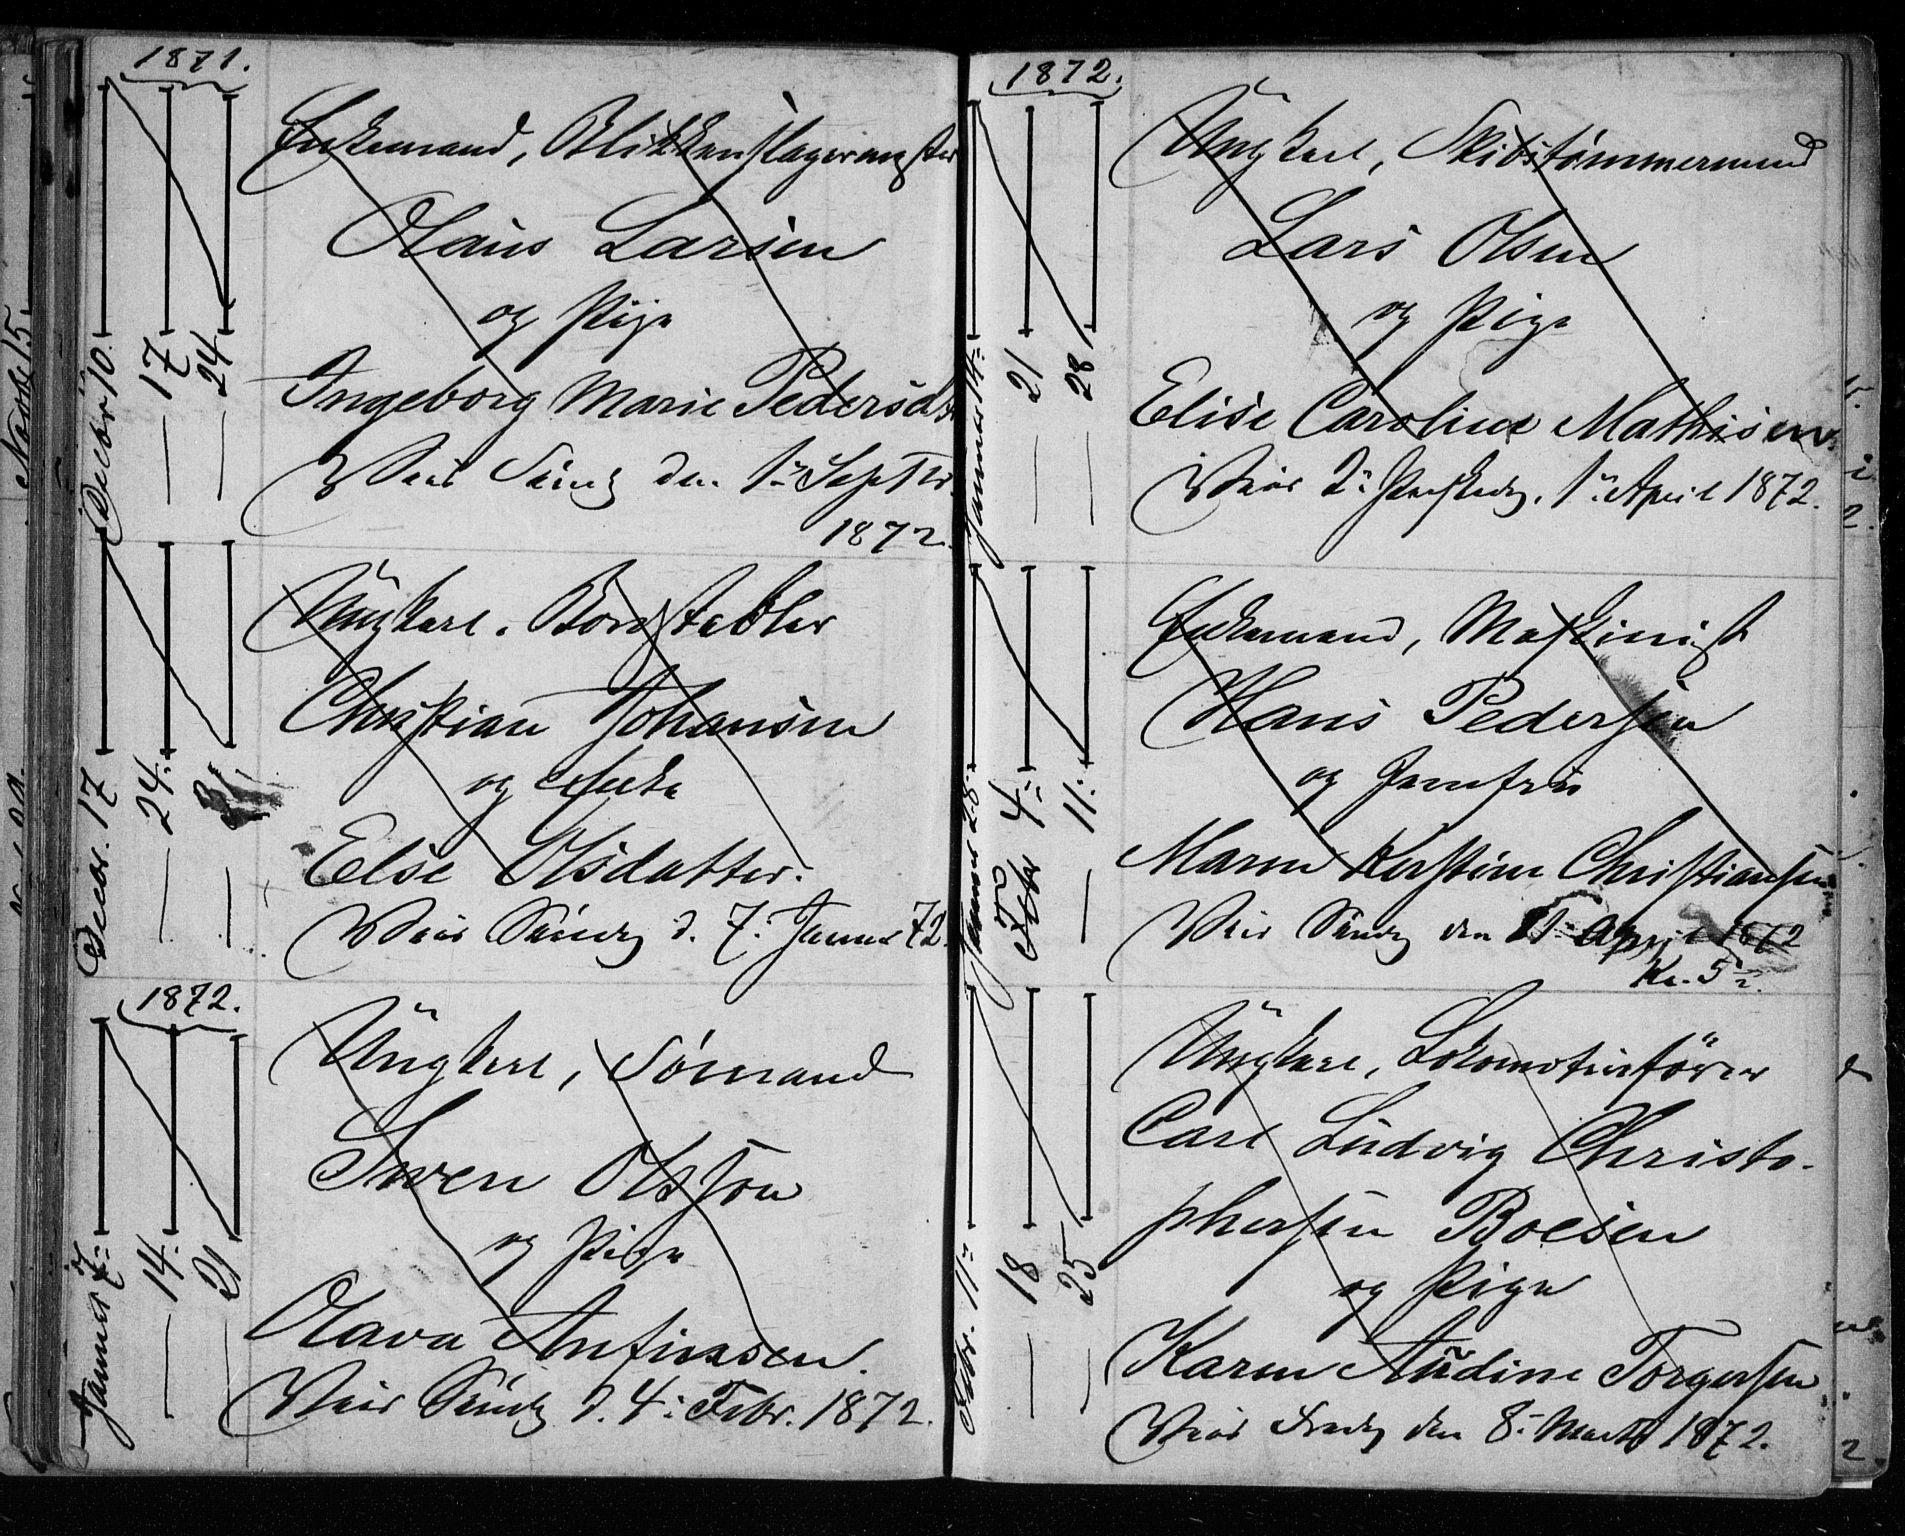 1871.
Decbr 10.
17
24
Enkemand, Blikkenslagermester
Olaus Larsen
og Pige
Ingeborg Marie Pedersdtr
Viet Søndg den 1ste Septbr.
1872.
Decbr. 17
24.
31.
Ungkarl. Bogstabler
Christian Johansen
og Enke
Else Olsdatter.
Viet Søndg d. 7. Januar 72.
1872.
Januar 7.
14.
21
Ungkarl, Sømand
Swen Olsson
og Pige
Olava Anfinssen.
Viet Søndg d. 4. Febr. 1872.
1872.
Januar 14.
21
28
Ungkarl, Skibstømmermand
Lars Olsen
og Pige
Elise Caroline Mathisen.
Viet 2. Paaskedg. 1. April 1872.
Januar 28.
Febr 4.
11.
Enkemand, Maskinist
Hans Pedersen
og Jomfru
Maren Kerstine Christiansen
Viet Søndg den 21. April 1872
Kl. 5
Febr. 11.
18
25
Ungkarl, Lokomotivförer
Carl Ludvig Christo-
phersen Boesen
og Pige
Karen Audine Torgersen
Viet Fredg den 8. Marts 1872.